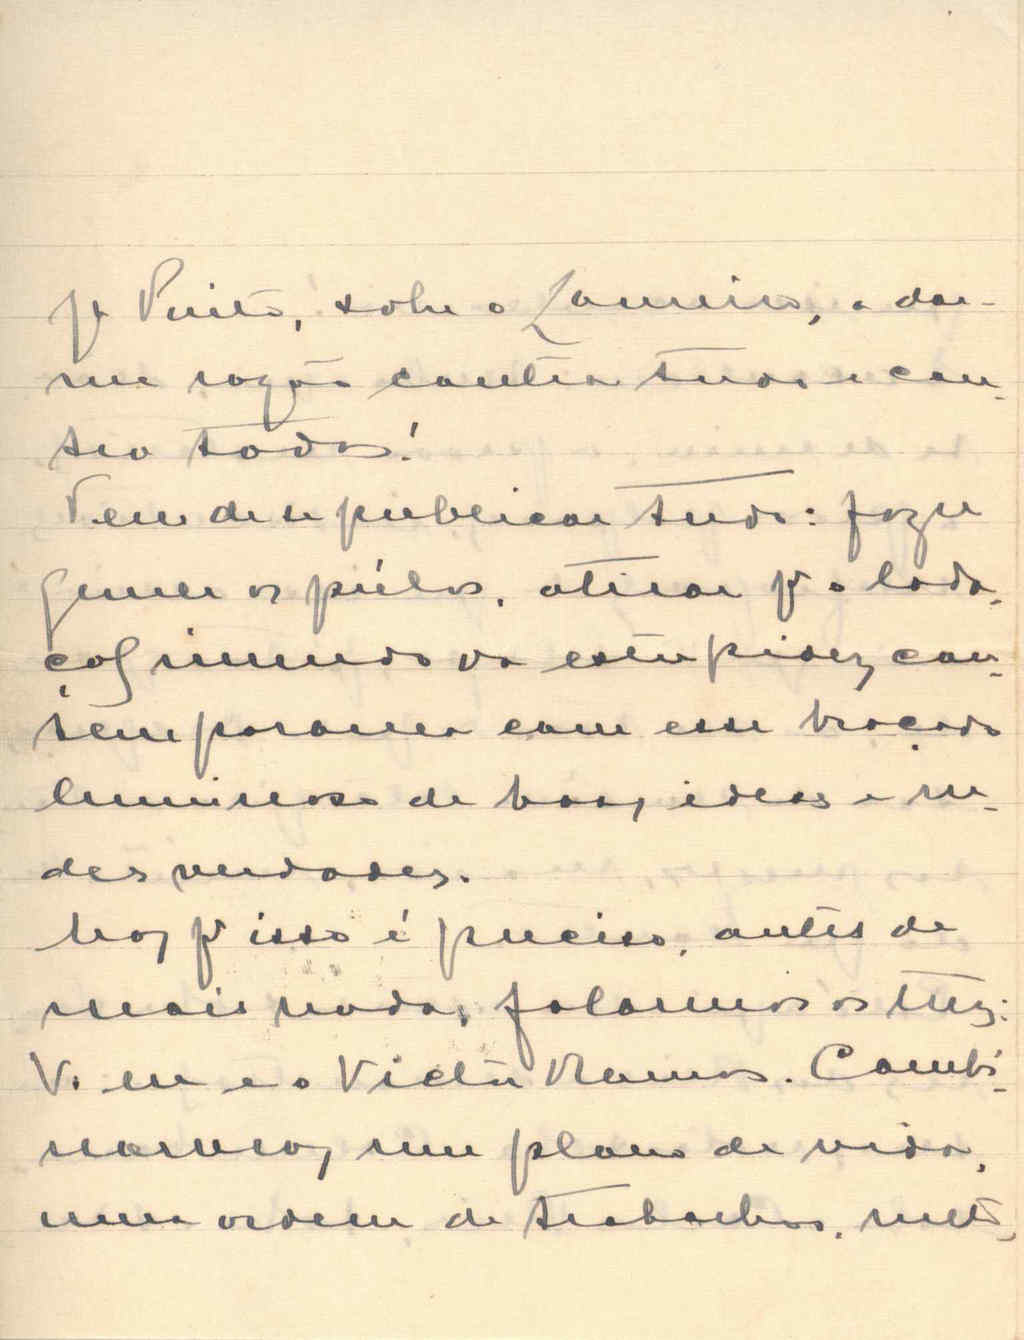 Pinto, sobre o Lameiro, a dar-
me razão contra tudo e con-
tra todos!
Temos de se publicar tudo: fazer
gemer os prélos, atirar p.ª o loda-
çal immundo da estupidez con-
temporanea com esse braçado
luminoso de boas ideas e ru-
des verdades.
Mas p.ª isso é preciso, antes de
mais nada, falarmos os tres:
V. eu e o Victor Ramos. Combi-
narmos um plano de vida,
uma ordem de trabalhos, meto-